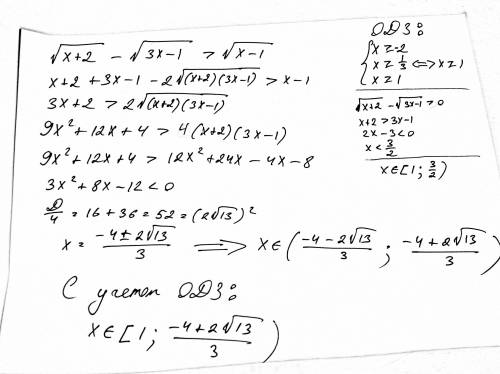 √(x+2) - √(3x-1) > √(x-1)
x+2+3x-1-2√((x+2)(3x-1)) > x-1
3x+2 > 2√((x+2)(3x-1))
9x²+12x+4 > 4(x+2)(3x-1)
9x²+12x+4 > 12x²+24x-4x-8
3x²+8x-12<0
D/4 = 16+36=52=(2√13)²
x = (-4±2√13)/3 ⟹ x∈((-4-2√13)/3 ; (-4+2√13)/3)
С учетом ОДЗ:
x∈[1; (-4+2√13)/3)
ОДЗ:
{x≥-2
x≥1/3 ⇔ x≥1
x≥1
√(x+2) - √(3x-1) > 0
x+2>3x-1
2x-3<0
x<3/2
x∈[1; 3/2)